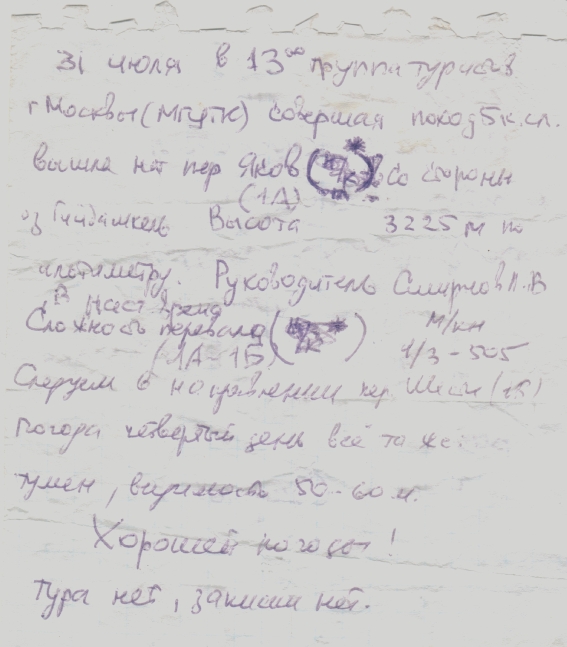 31 июля в 13⁰⁰ группа туристов
г Москвы (МГЦТК) совершая поход 5 к.сл.
вышла на пер Яков со стороны
(1А)
оз Гийдамкель Высота 3225 м по
альтометру. Руководитель Смирнов В
В наст время
Сложность перевала м/кн
(1А-1Б) 1/3-505
Следуем в направлении пер. (1Б)
Погода четвертый день всё та же
туман, видимость 50-60 м.
Хорошей погоды!
Тура нет, записки нет.